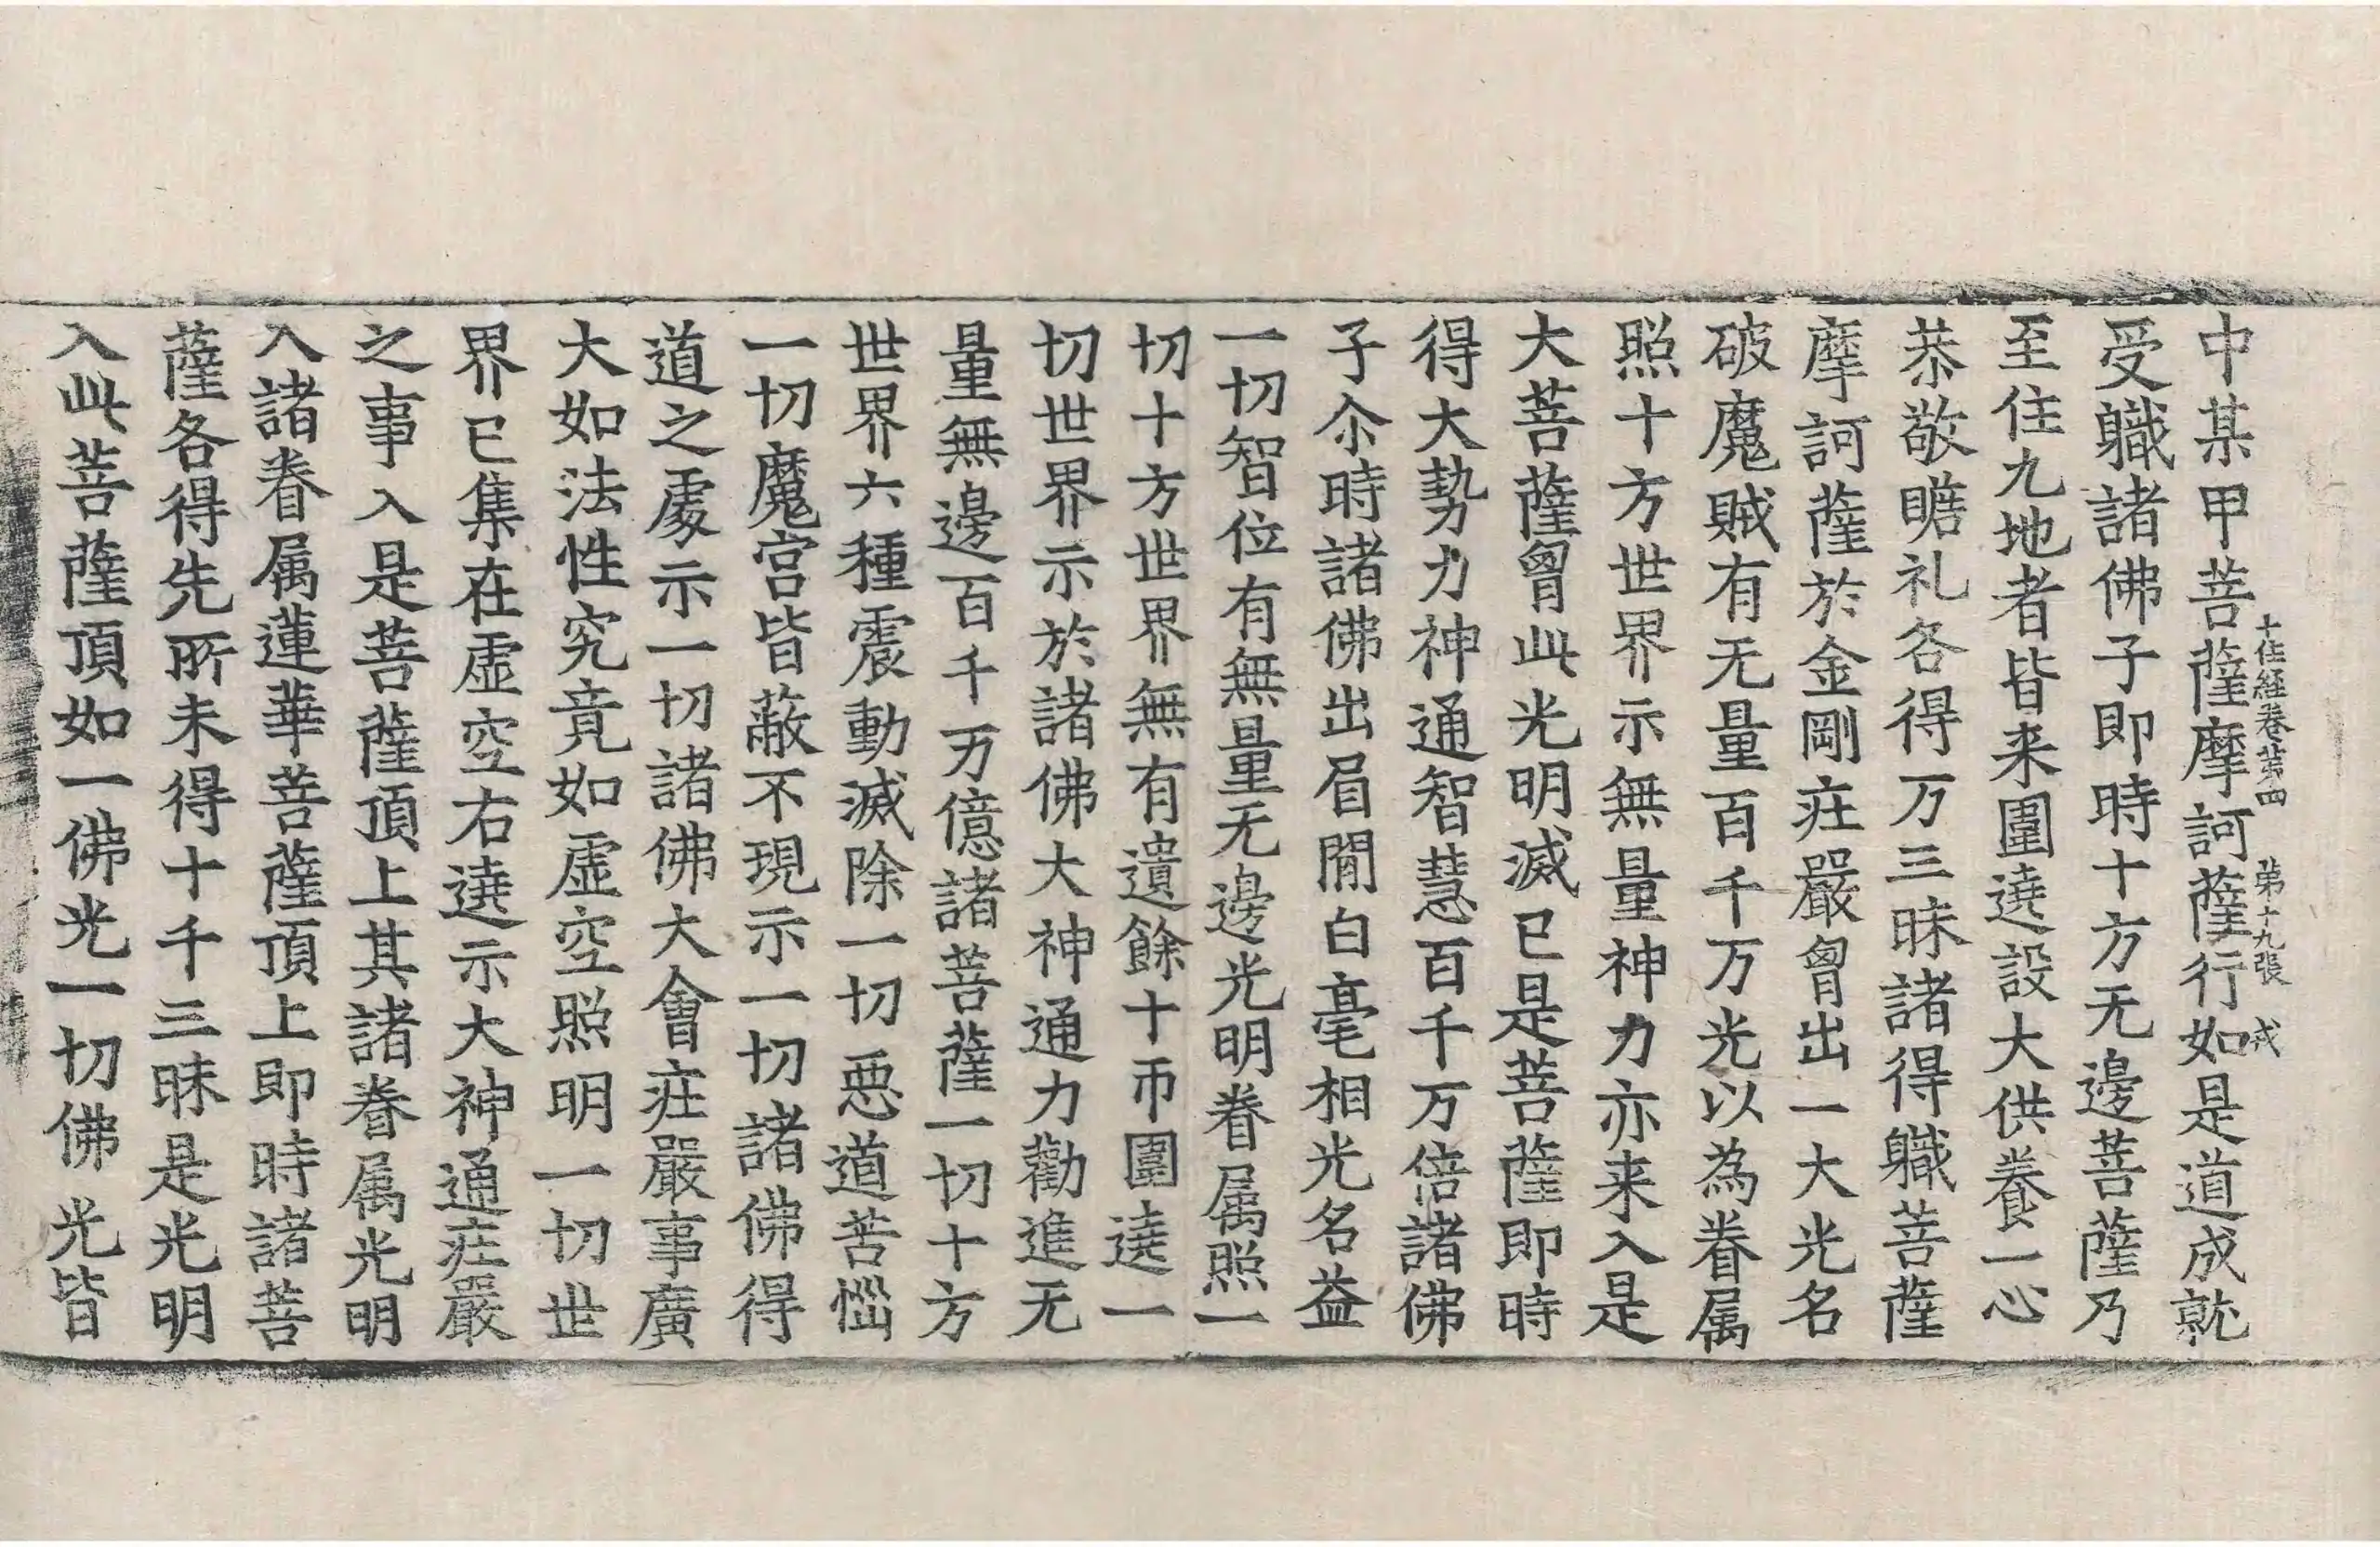 十住経卷第四 弟十九張 戎
中某甲菩薩摩訶薩行如是道成就
受軄諸佛子即時十方无邊菩薩乃
至住九地者皆来圍遶設大供養一心
恭敬瞻礼各得万三昧諸得軄菩薩
摩訶薩於金剛疘嚴胷出一大光名
破魔賊有无量百千万光以為眷属
照十方世界示無量神力亦来入是
大菩薩胷此光明滅已是菩薩即時
得大勢力神通智慧百千万倍諸佛
子尒時諸佛出眉閒白毫相光名益
一切智位有無量无邊光明眷属照一
切十方世界無有遺餘十帀圍遶一
切世界示於諸佛大神通力勸進无
量無邊百千万億諸菩薩一切十方
世界六種震動滅除一切惡道苦惱
一切魔宫皆蔽不現示一切諸佛得
道之處示一切諸佛大會疘嚴事廣
大如法性究竟如虛空照明一切世
界已集在虛空右遶示大神通疘嚴
之事入是菩薩頂上其諸眷属光明
入諸眷属蓮華菩薩頂上即時諸菩
薩各得先所未得十千三昧是光明
入此菩薩頂如一佛光一切佛光皆